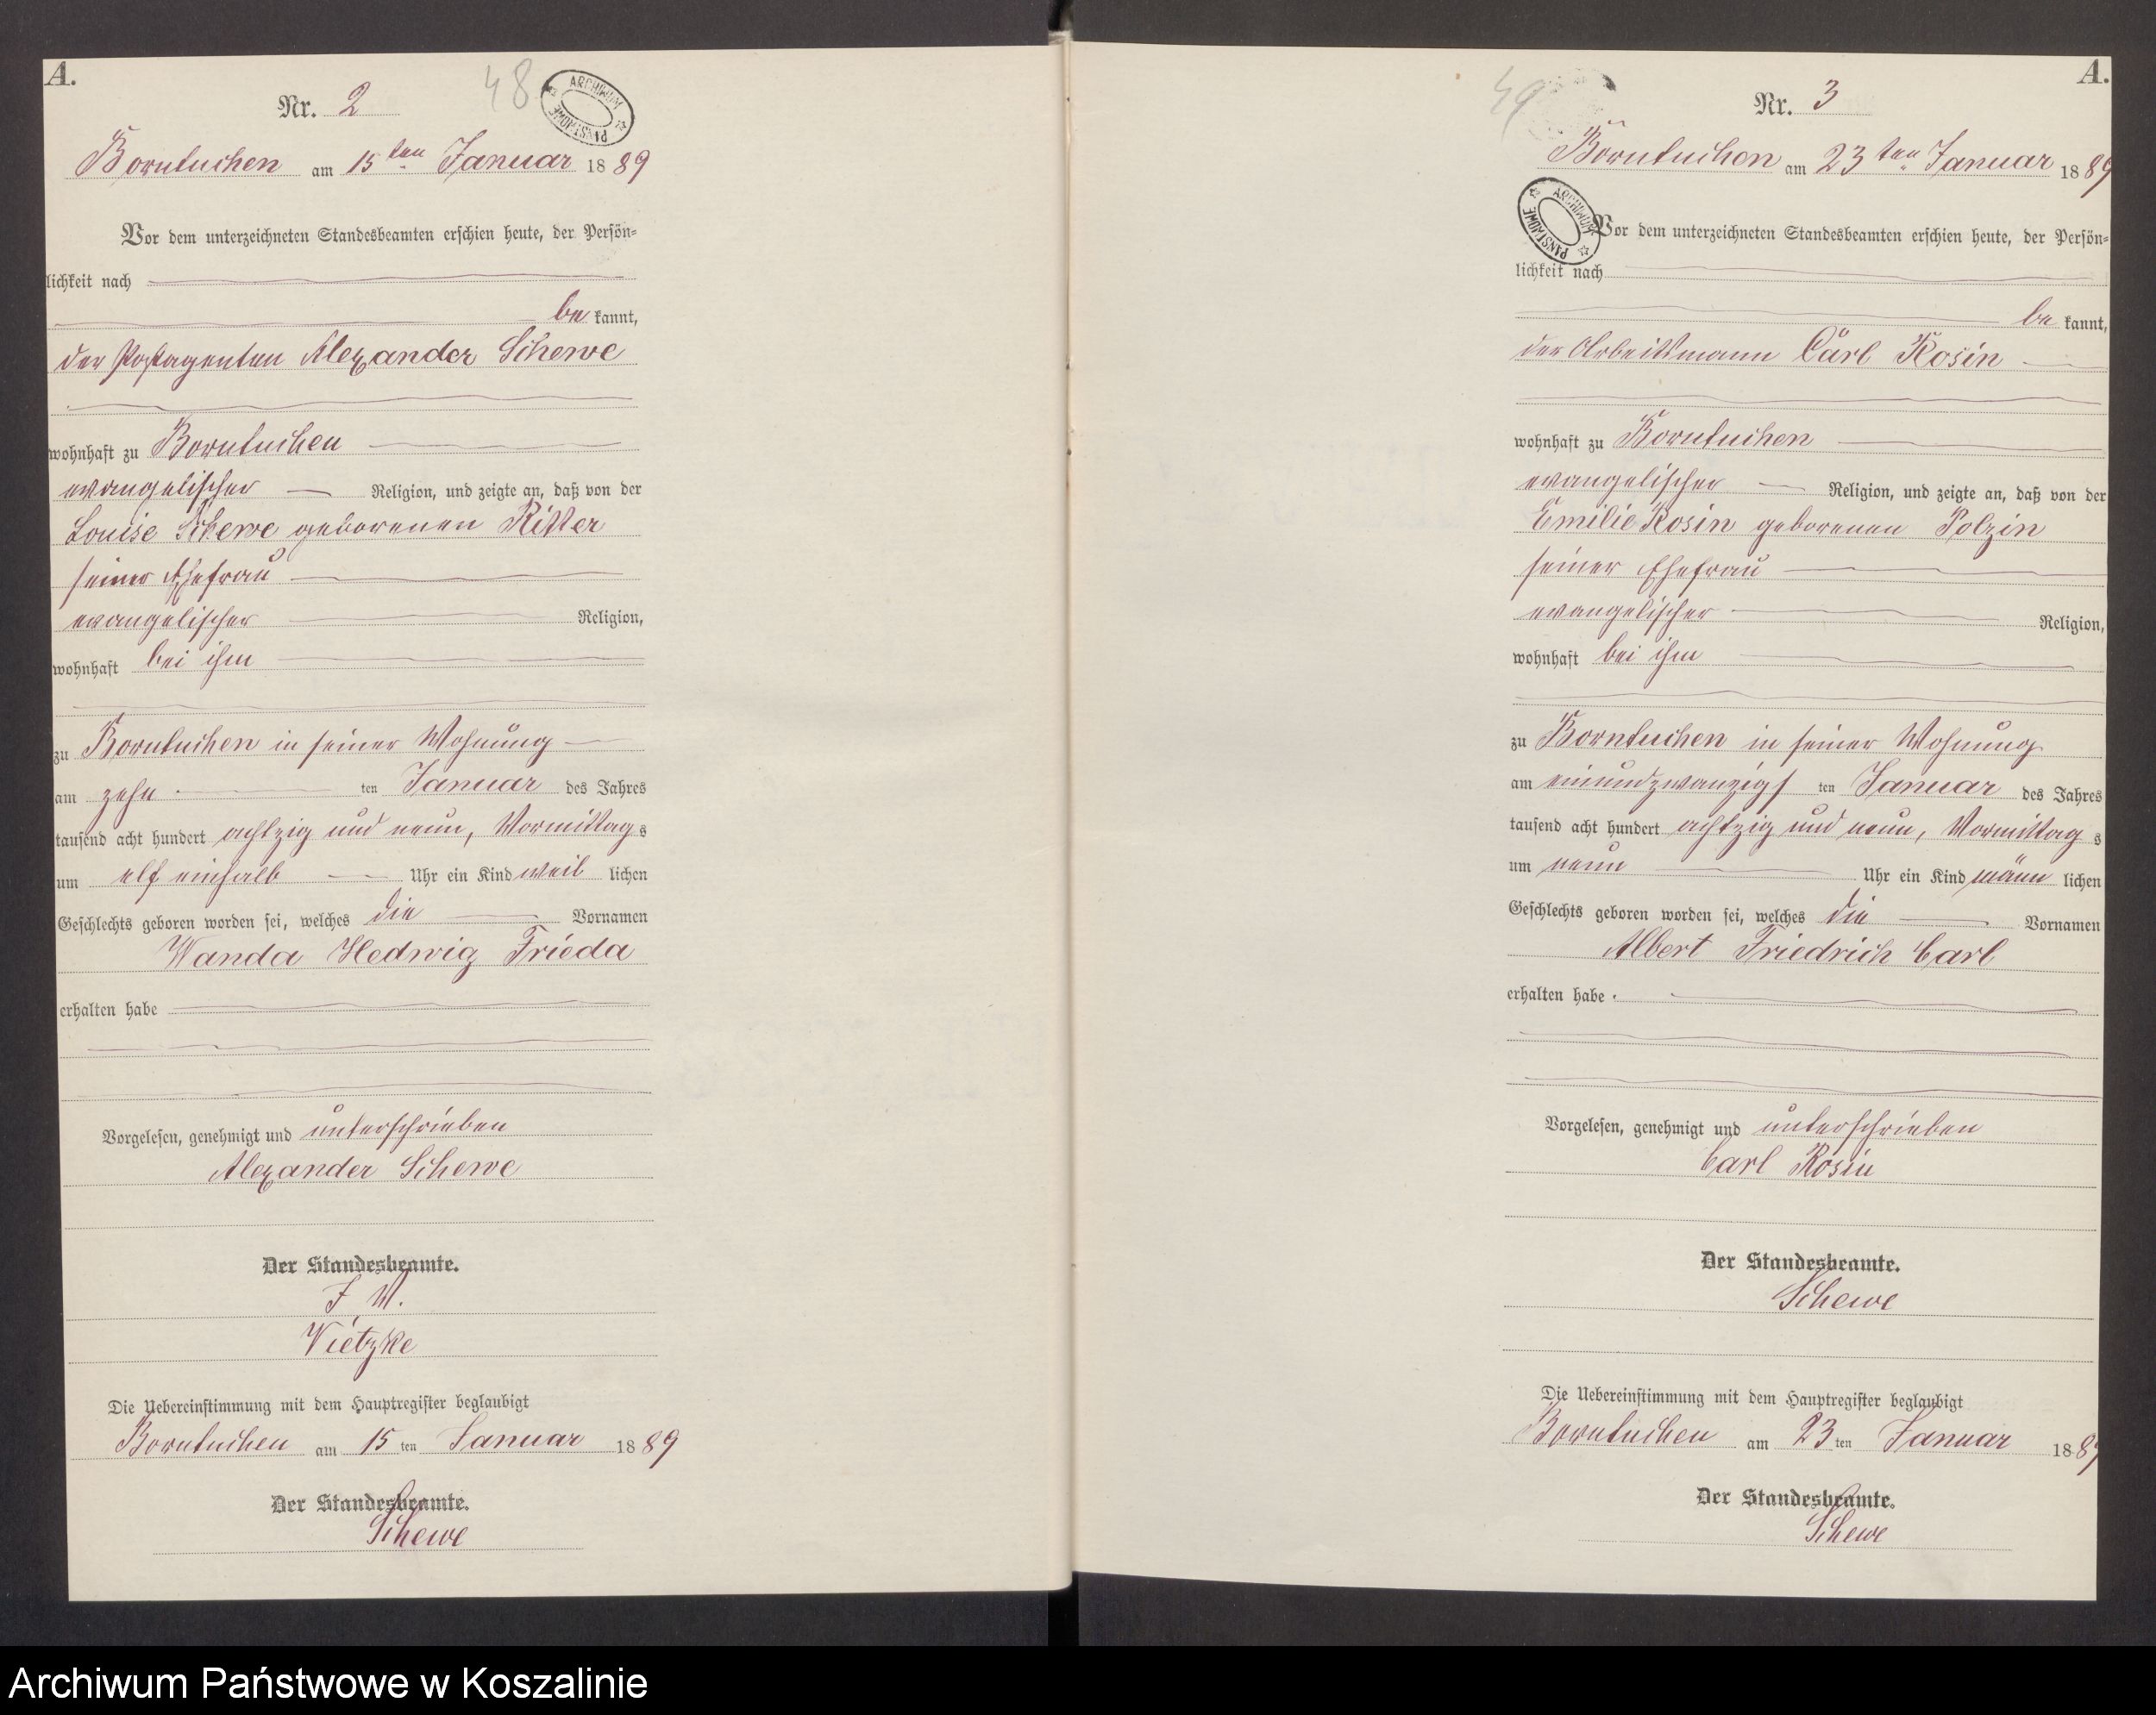 A.
Nr. 2
48
ARCHIWUM PAŃSTWOWE
Borntuchen am 15ten Januar 1889
Vor dem unterzeichneten Standesbeamten erschien heute, der Persön-
lichkeit nach
be kannt,
der Postagenten Alexander Schewe
wohnhaft zu Borntuchen
evangelischer Religion, und zeigte an, daß von der
Louise Schewe geborenen Ritter
seiner Ehefrau
evangelischer Religion,
wohnhaft bei ihm
zu Borntuchen in seiner Wohnung
am zehn ten Januar des Jahres
tausend acht hundert achtzig und neun, Vormittag s
um elf einhalb Uhr ein Kind weib lichen
Geschlechts geboren worden sei, welches die Vornamen
Wanda Hedwig Frieda
erhalten habe
Vorgelesen, genehmigt und unterschrieben
Alexander Schewe
Der Standesbeamte.
I W.
Vietzke
Die Uebereinstimmung mit dem Hauptregister beglaubigt
Borntuchen am 15 ten Januar 1889
Der Standesbeamte.
Schewe
A.
Nr. 3
49
Borntuchen am 23ten Januar 1889
ARCHIWUM PAŃSTWOWE
Vor dem unterzeichneten Standesbeamten erschien heute, der Persön-
lichkeit nach
be kannt,
der Arbeitsmann Carl Rosin
wohnhaft zu Borntuchen
evangelischer Religion, und zeigte an, daß von der
Emilie Rosin geborenen Polzin
seiner Ehefrau
evangelischer Religion,
wohnhaft bei ihm
zu Borntuchen in seiner Wohnung
am einundzwanzigs ten Januar des Jahres
tausend acht hundert achtzig und neun, Vormittag s
um neun Uhr ein Kind männ lichen
Geschlechts geboren worden sei, welches die Vornamen
Albert Friedrich Carl
erhalten habe
Vorgelesen, genehmigt und unterschrieben
Carl Rosin
Der Standesbeamte.
Schewe
Die Uebereinstimmung mit dem Hauptregister beglaubigt
Borntuchen am 23 ten Januar 1889
Der Standesbeamte.
Schewe
Archiwum Państwowe w Koszalinie